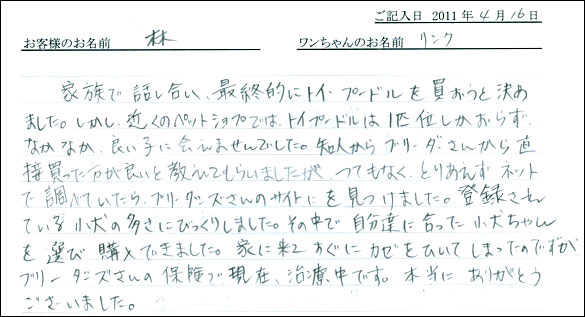 ご記入日 2011年4月16日
お客様のお名前 林 ワンちゃんのお名前 リンク
家族で話し合い、最終的にトイ・プードルを買おうと決め
ました。しかし、近くのペットショプでは、トイプードルは1匹位しかおらず、
なかなか、良い子に会えませんでした。知人からブリーダーさんから直
接買った方が良いと教えてもらいましたが、つてもなく、とりあえずネット
で調べていたら、ブリーダーズさんのサイトにを見つけました。登録され
ている小犬の多さにびっくりしました。その中で自分達に合った小犬ちゃん
を選び購入できました。家に来てすぐにカゼをひいてしまったのですが
ブリーダーズさんの保険で現在、治療中です。本当にありがとう
ございました。